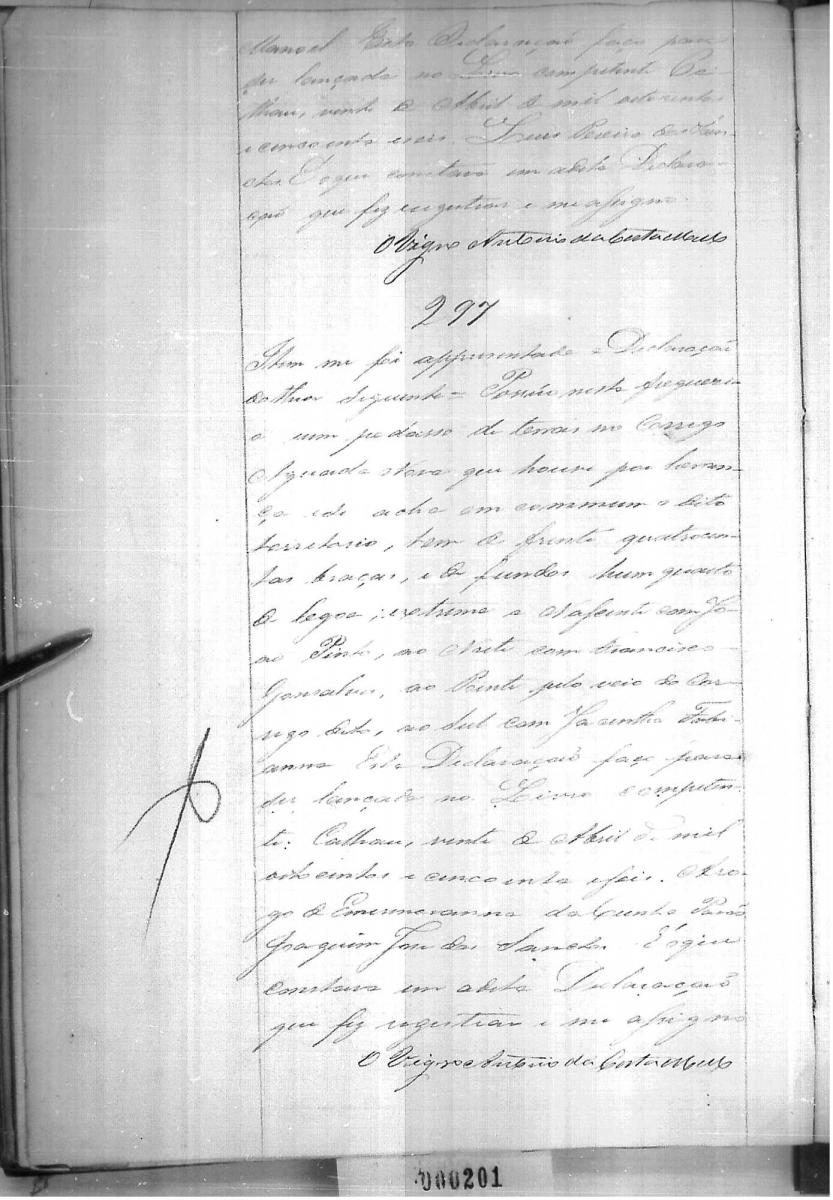 Manoel Esta Declaração faço para
ser lançada no Livro competente Ca
lhau, vinte de Abril de mil oitocentos
e cincoenta e seis. Luis Pereira dos San-
ctos. É o que constava em a dita Declara-
ção que fiz registrar e me assigno.
O Vigro Antonio da Costa Mello
297
Item me foi appresentada a Declaração
do theor seguinte = Possúo nesta freguezi-
a um pedasso de terras no Corrego
Aguada Nova que houve por heran-
ça e di acha em commum o dito
territorio, tem de frente quatrocen-
tas braças, e de fundos hum quarto
de legoa; extrema a Nascente com Jo-
ao Pinto, ao Norte com Francisco
Gonsalves, ao Poente pelo veio do Cor-
rego dito, ao Sul com Jacintha Fabi-
anna Esta Declaração faço para
ser lançada no Livro competen-
te: Calhau, vinte de Abril de mil
oitocentos e cincoenta e seis. Aro-
go de da Cunha
Joaquim José dos Sanctos É o que
constava em a dita Declaração
que fiz registrar e me assigno
O Vigro Antonio da Costa Mello
000201